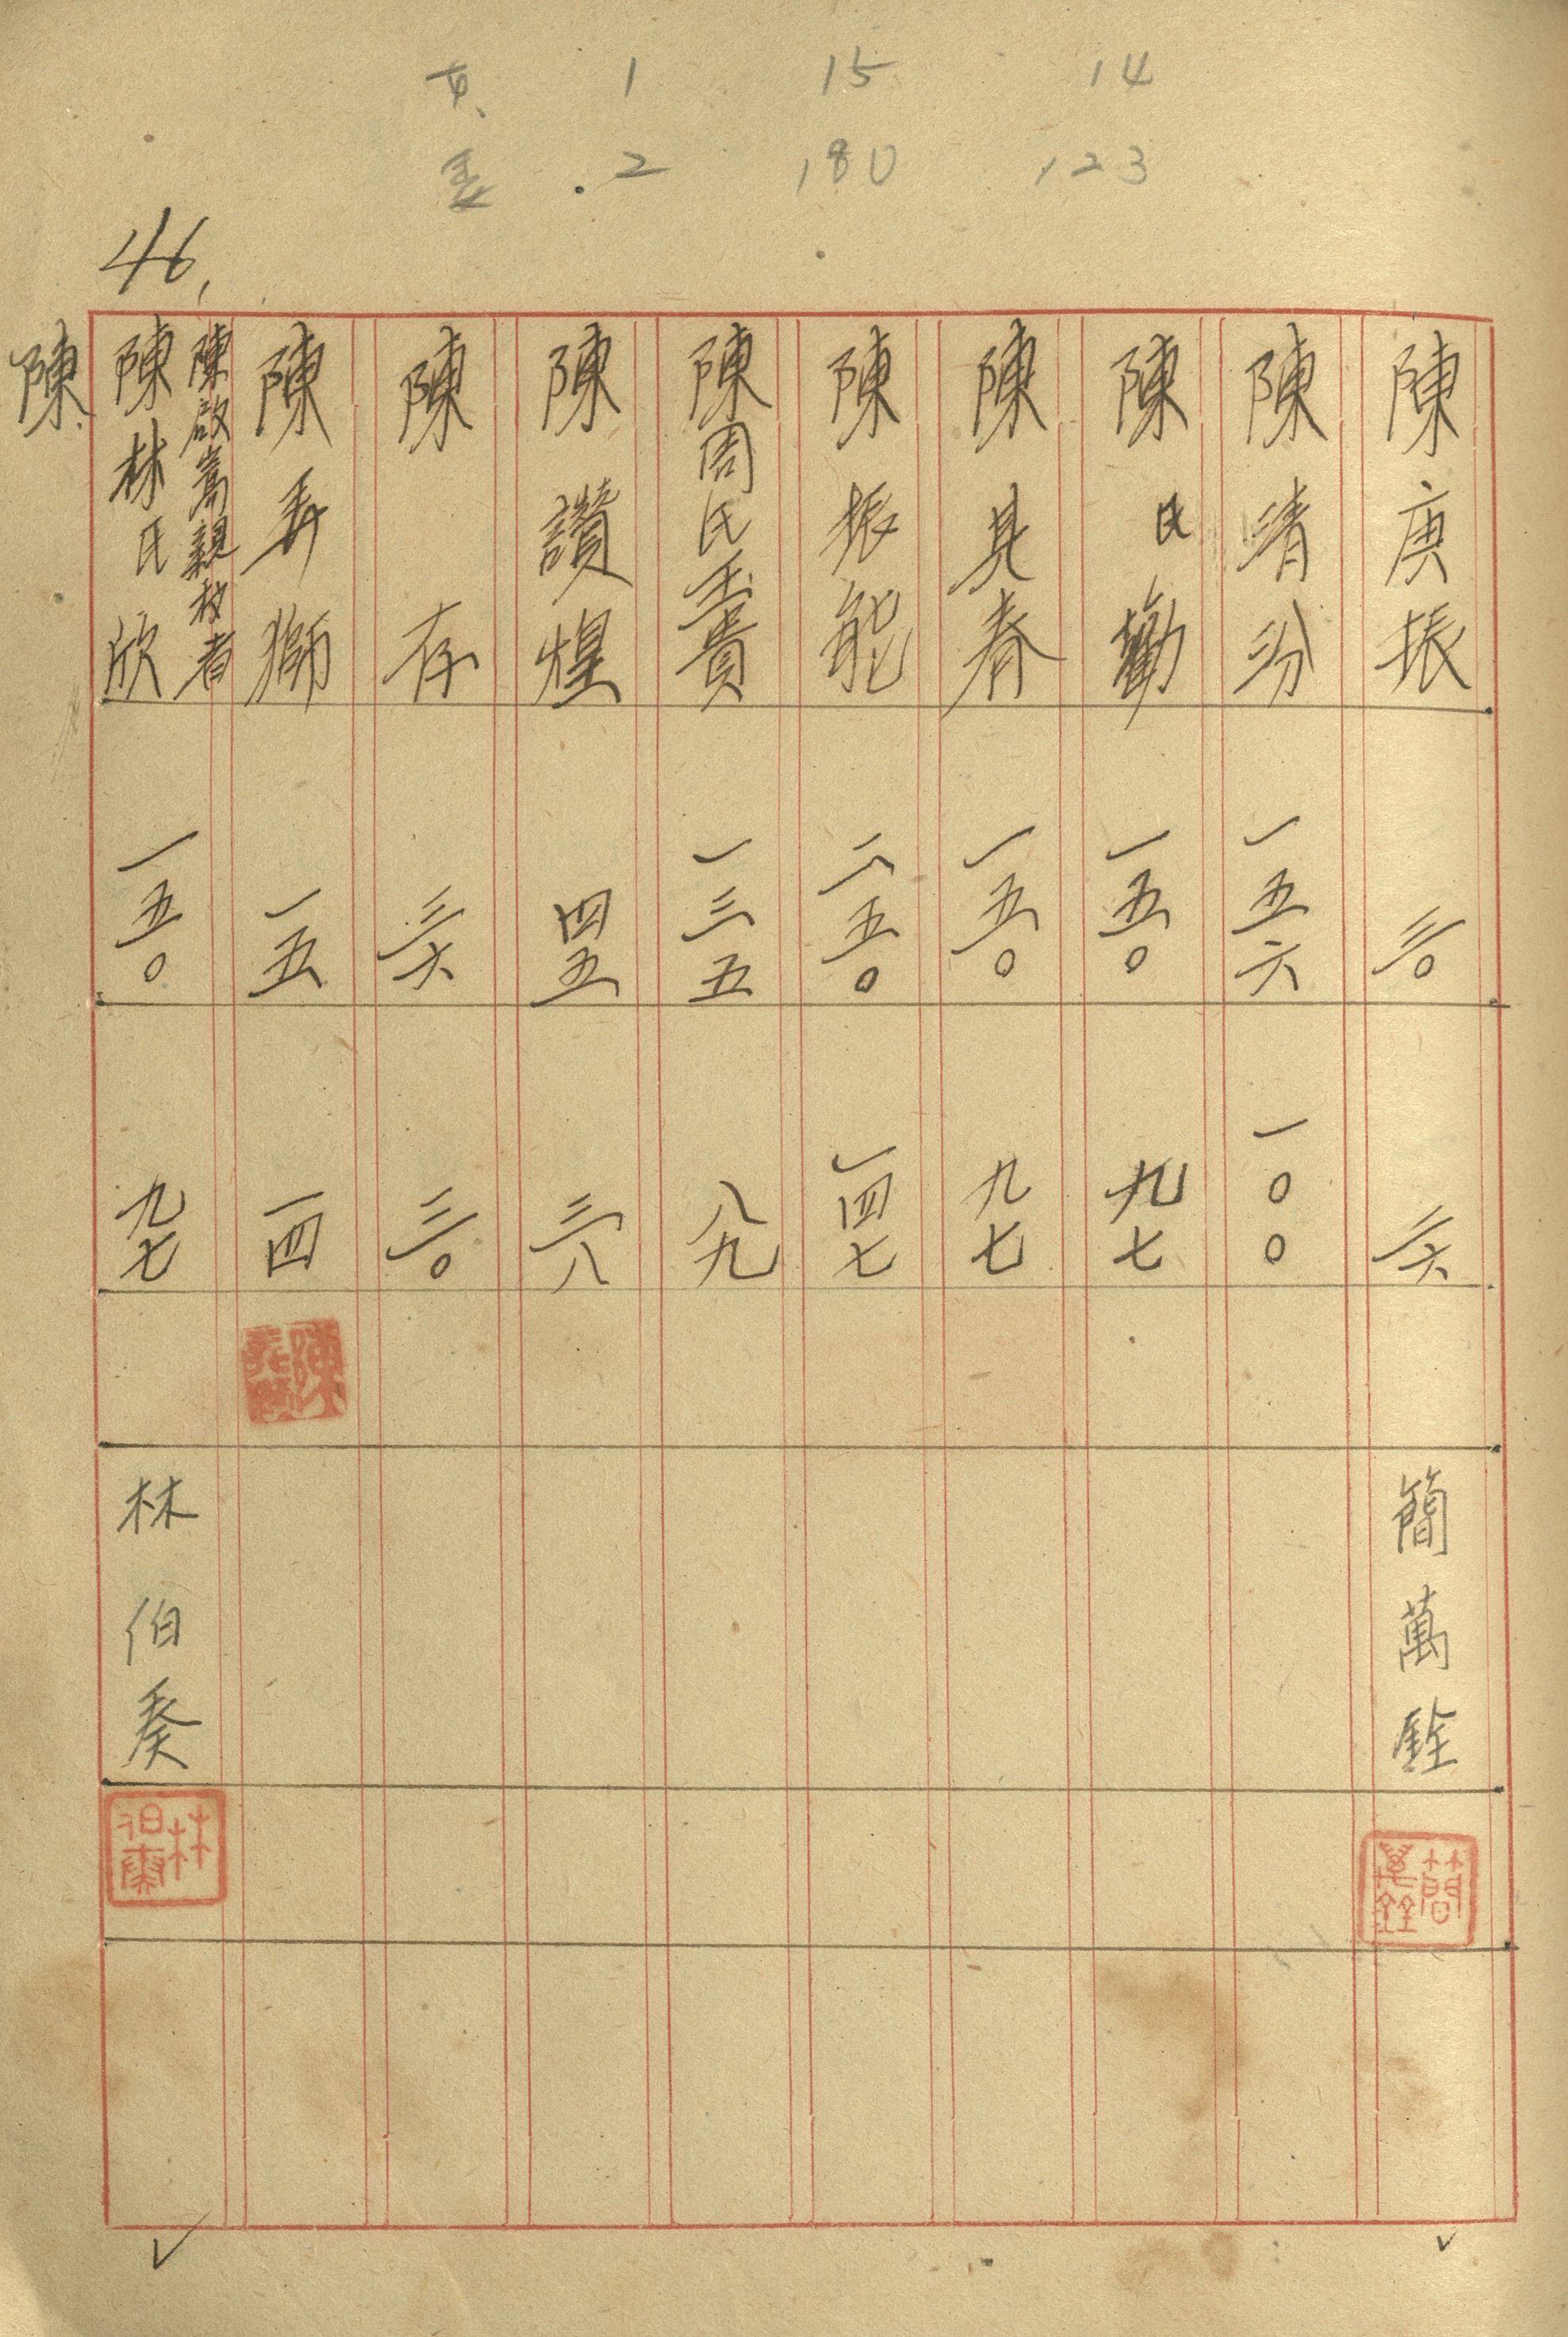 女 1 15 14
2 180 123
46,
陳庚振 三〇 二六 簡萬銓 簡萬銓
陳清汾 一五六 一〇〇
陳氏勸 一五〇 九七
陳其春 一五〇 九七
陳振能 二五〇 一四七
陳周氏玉貴 一三五 八九
陳讚煌 四五 三八
陳存 三六 三〇
陳弄獅 一五 一四 陳
陳啟嵩親权者
陳林氏欣 一五〇 九七 林伯奏 林伯奏
陳